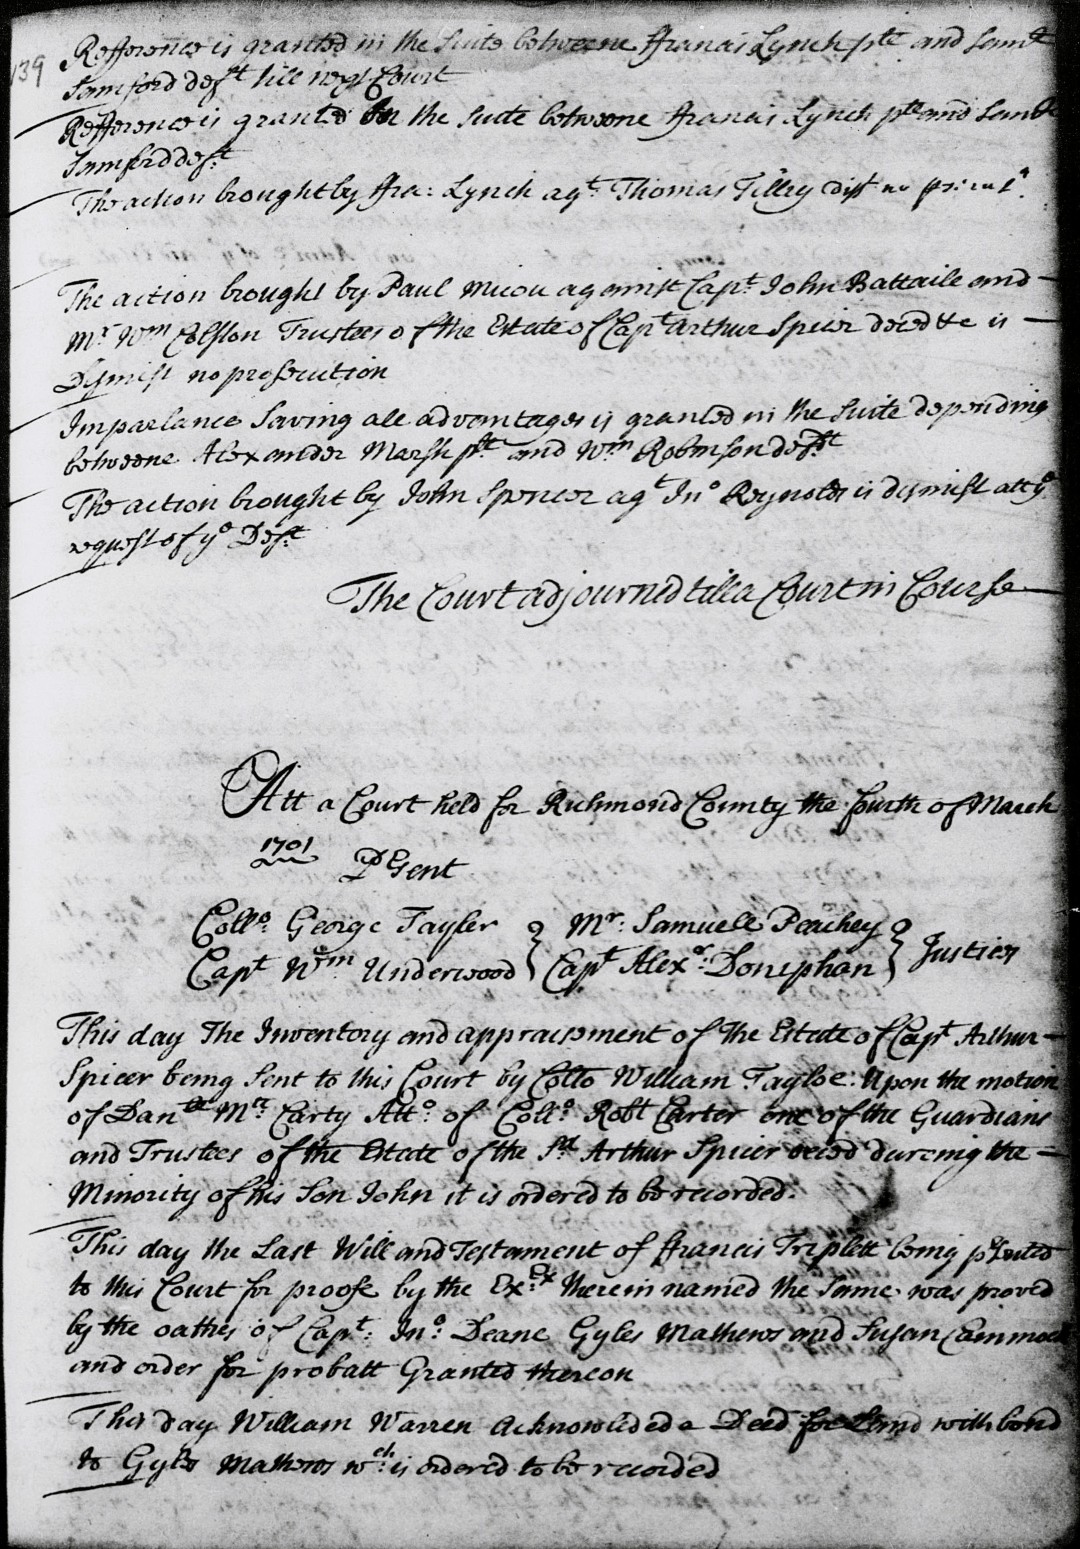 139
Refference is granted in the Suite betweene ffrancis Lynch plt and Samll
Samford deft till next Court
Refference is granted In the suite betweene ffrancis Lynch plt and Samll
Samford deft
The action brought by ffra: Lynch agt. Thomas Tilley dist no
The action brought by Paul Micou against Capt. John Battaile and
Mr. Wm Colston Trustees of the Estate of Capt Arthur Spicer deced &c is
Dismist no prosecution
Imparlance Saving all advantages is granted in the Suite depending
betweene Alexander Marsh plt and Wm Robinson deft
The action brought by John Spencer agt Jno Reynolds is dismist att ye
request of ye Deft
The Court adjourned till a Court in Course
Att a Court held for Richmond County the fourth of March
1701
PSent
Collo. George Tayler } Mr. Samuell Peachey } Justices
Capt Wm Underwood } Capt Alexr: Doniphan }
This day The Inventory and appraisment of the Estate of Capt Arthur
Spicer being Sent to this Court by Collo William Tayloe: Upon the motion
of Danll Mc Carty Atto. of Collo. Robt Carter one of the Guardians
and Trustees of the Estate of the sd. Arthur Spicer deced dureing the
Minority of his Son John it is ordered to be recorded.
This day the Last Will and Testament of ffrancis Triplett being pSented
to this Court for proofe by the Exex: therein named the same was proved
by the oathes of Capt: Jno. Deane Gyles Mathews and Susan Cammock
and order for probatt Granted thereon
This day William Warren Acknowlided a Deed for Land with bond
to Gyles Mathews wch. is ordered to be recorded